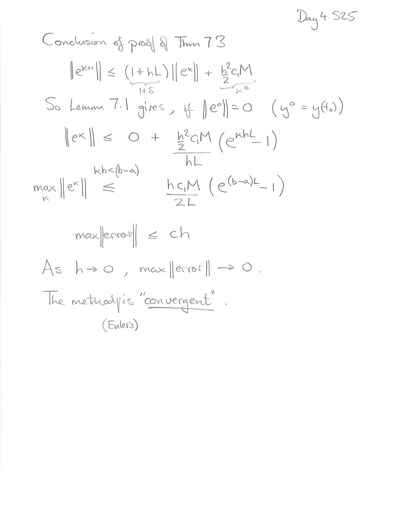 Day 4 S25
Conclusion of proof of Thm 7.3
‖eᵏ⁺¹‖ ≤ (1+hL)‖eᵏ‖ + h²/2 c₁M
1+δ
So Lemma 7.1 gives, if ‖e⁰‖=0 (y⁰ = y(t₀))
‖eᵏ‖ ≤ 0 + (h²/2 c₁M)/(hL) (e^{khL} − 1)
kh≤(b−a)
max_k ‖eᵏ‖ ≤ hc₁M/2L (e^{(b−a)L} − 1)
max‖error‖ ≤ ch
As h→0, max‖error‖ → 0.
The method is "convergent".
(Euler's)